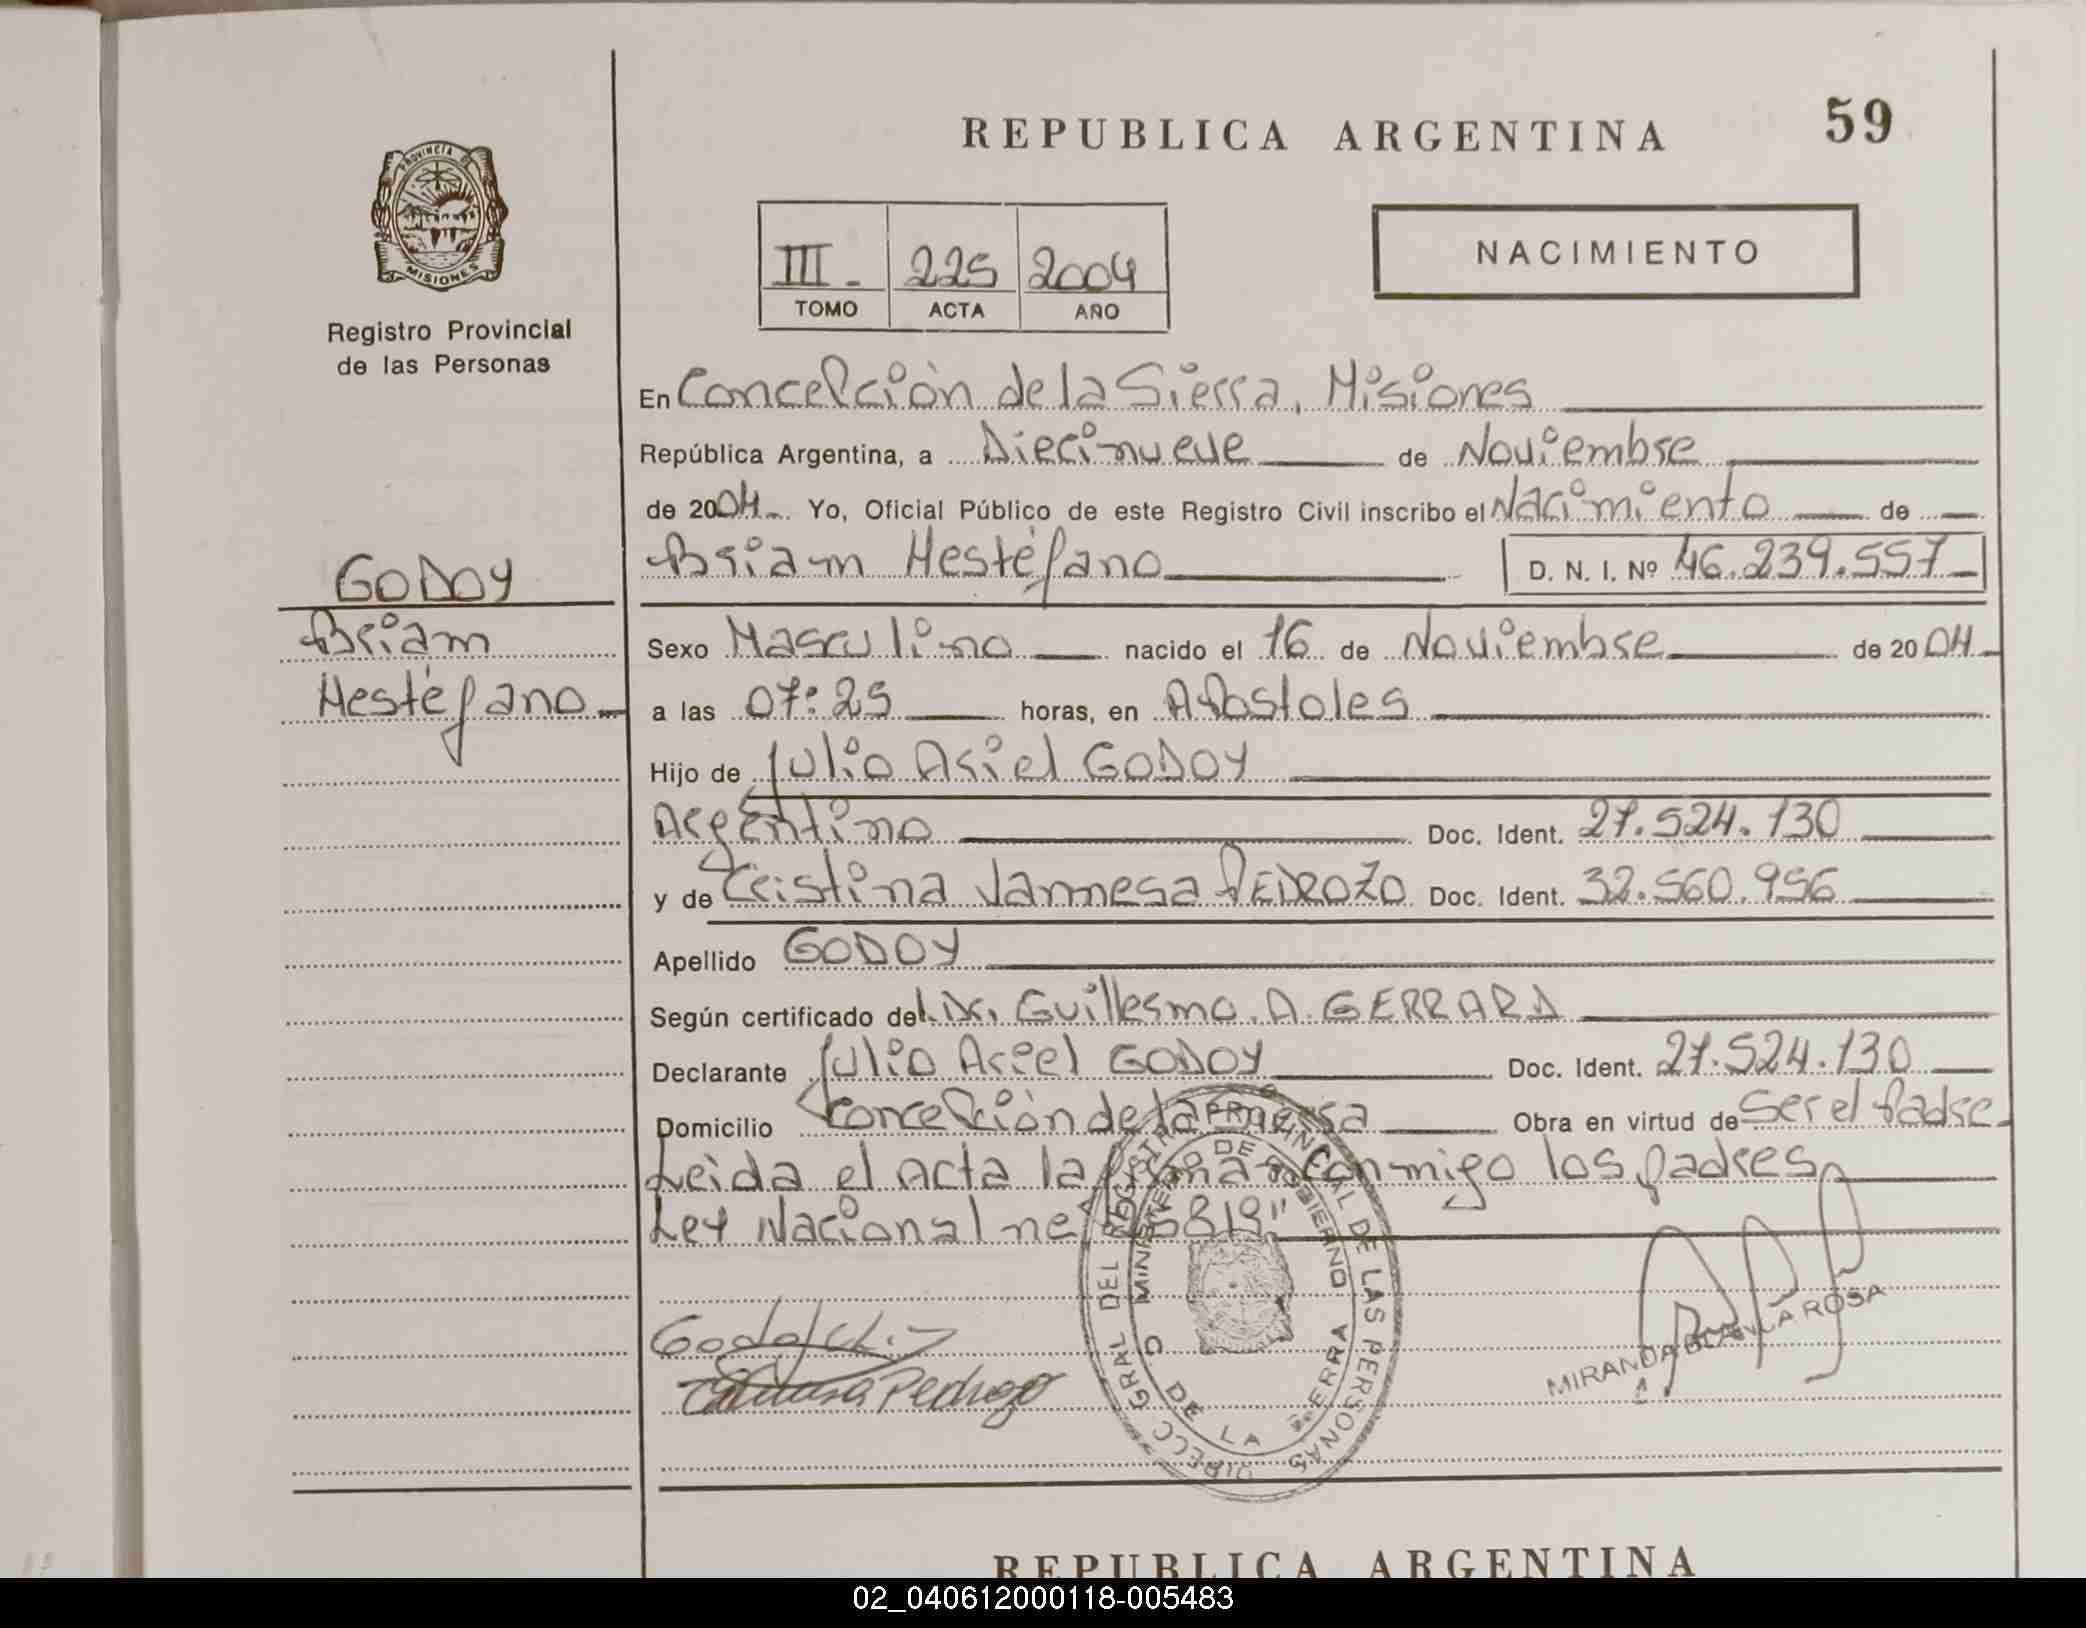 REPUBLICA ARGENTINA
59
PROVINCIA DE
MISIONES
Registro Provincial
de las Personas
III - 225 2004
TOMO ACTA AÑO
NACIMIENTO
En Concepción de la Sierra, Misiones
República Argentina, a Diecinueve de Noviembre
de 2004 Yo, Oficial Público de este Registro Civil inscribo el Nacimiento de
Briam Hestéfano D. N. I. Nº 46.239.557
GODOY
Briam
Hestéfano
Sexo Masculino nacido el 16 de Noviembre de 2004
a las 07:25 horas, en Apostoles
Hijo de Julio Ariel GODOY
Argentino Doc. Ident. 27.524.130
y de Cristina Vannesa PEDROZO Doc. Ident. 32.560.956
Apellido GODOY
Según certificado del Dr. Guillermo A. GERRARD
Declarante Julio Ariel GODOY Doc. Ident. 27.524.130
Domicilio Concepción de la Sierra Obra en virtud de Ser el Padre
Leida el acta la firman conmigo los padres
Ley Nacional
DIRECC GRAL DEL REGISTRO PROVINCIAL DE LAS PERSONAS
MINISTERIO DE GOBIERNO
C DE LA SIERRA
Pedrozo
MIRANDA BLANCA ROSA
REPUBLICA ARGENTINA
02_040612000118-005483